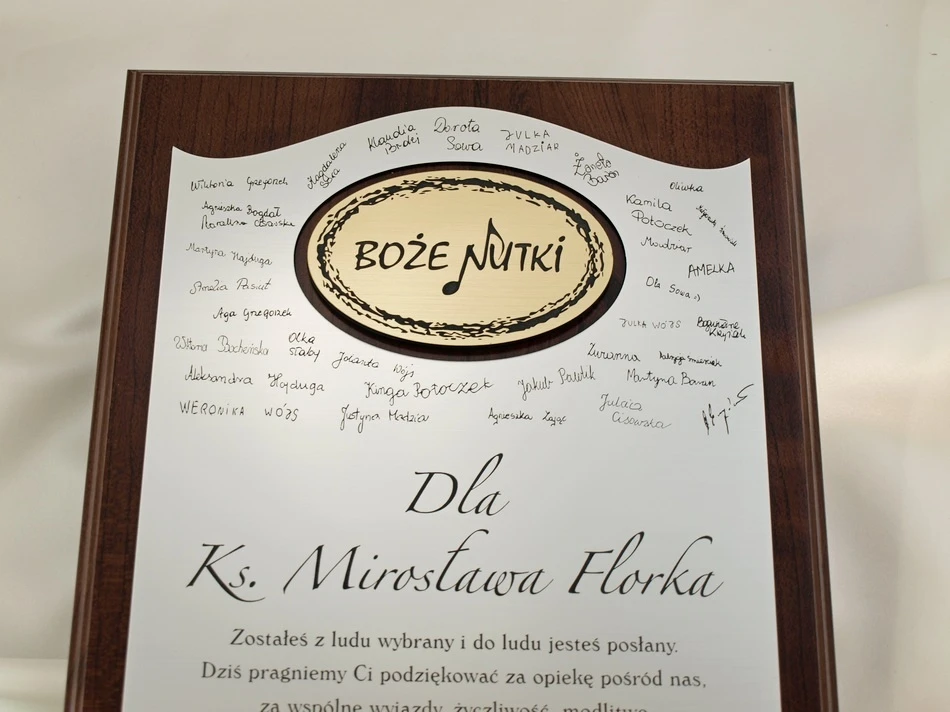 Klaudia
Dorota
Sowa
JULKA
MADZIAR
Magdalena
Wiktoria Grzegorzek
Oliwka
Kamila
Potoczek
Agnieszka Bogdał
Martyna Hajduga
AMELKA
Ola Sowa :)
Amelia Pasiut
Aga Grzegorzek
JULKA WÓJS
BOŻE NUTKI
Olka
słaby
Jolanta Wójs
Zuzanna
Aleksandra Hajduga
Kinga Potoczek
Jakub
Martyna Baran
WERONIKA WÓJS
Justyna
Agnieszka Zając
Cisowska
Dla
Ks. Mirosława Florka
Zostałeś z ludu wybrany i do ludu jesteś posłany.
Dziś pragniemy Ci podziękować za opiekę pośród nas,
za wspólne wyjazdy, życzliwość, modlitwę